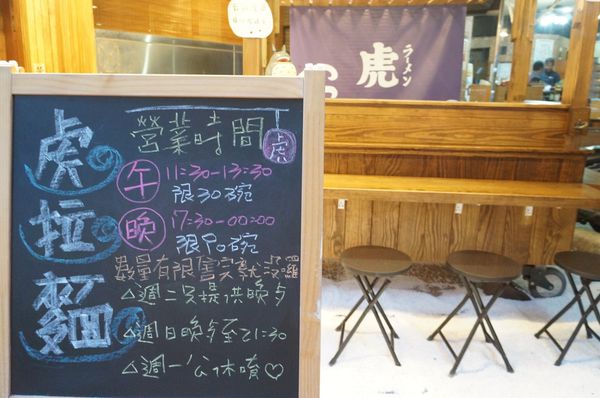 虎拉麵
營業時間
虎
午 11:30-13:30
限30碗
晚 17:30-00:00
限90碗
數量有限售完就沒囉
△週二只提供晚夕
△週日晚夕至21:30
△週一公休唷♡
虎
ラーメン